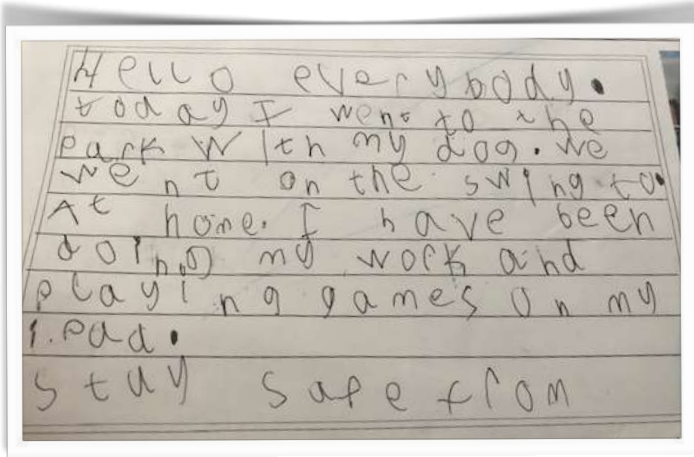 Hello everybody.
today I went to the
park with my dog. we
went on the swing to.
At home. I have been
doing my work and
playing games on my
i.pad.
stay safe from